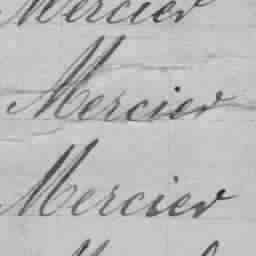 Mercier
Mercier
Mercier